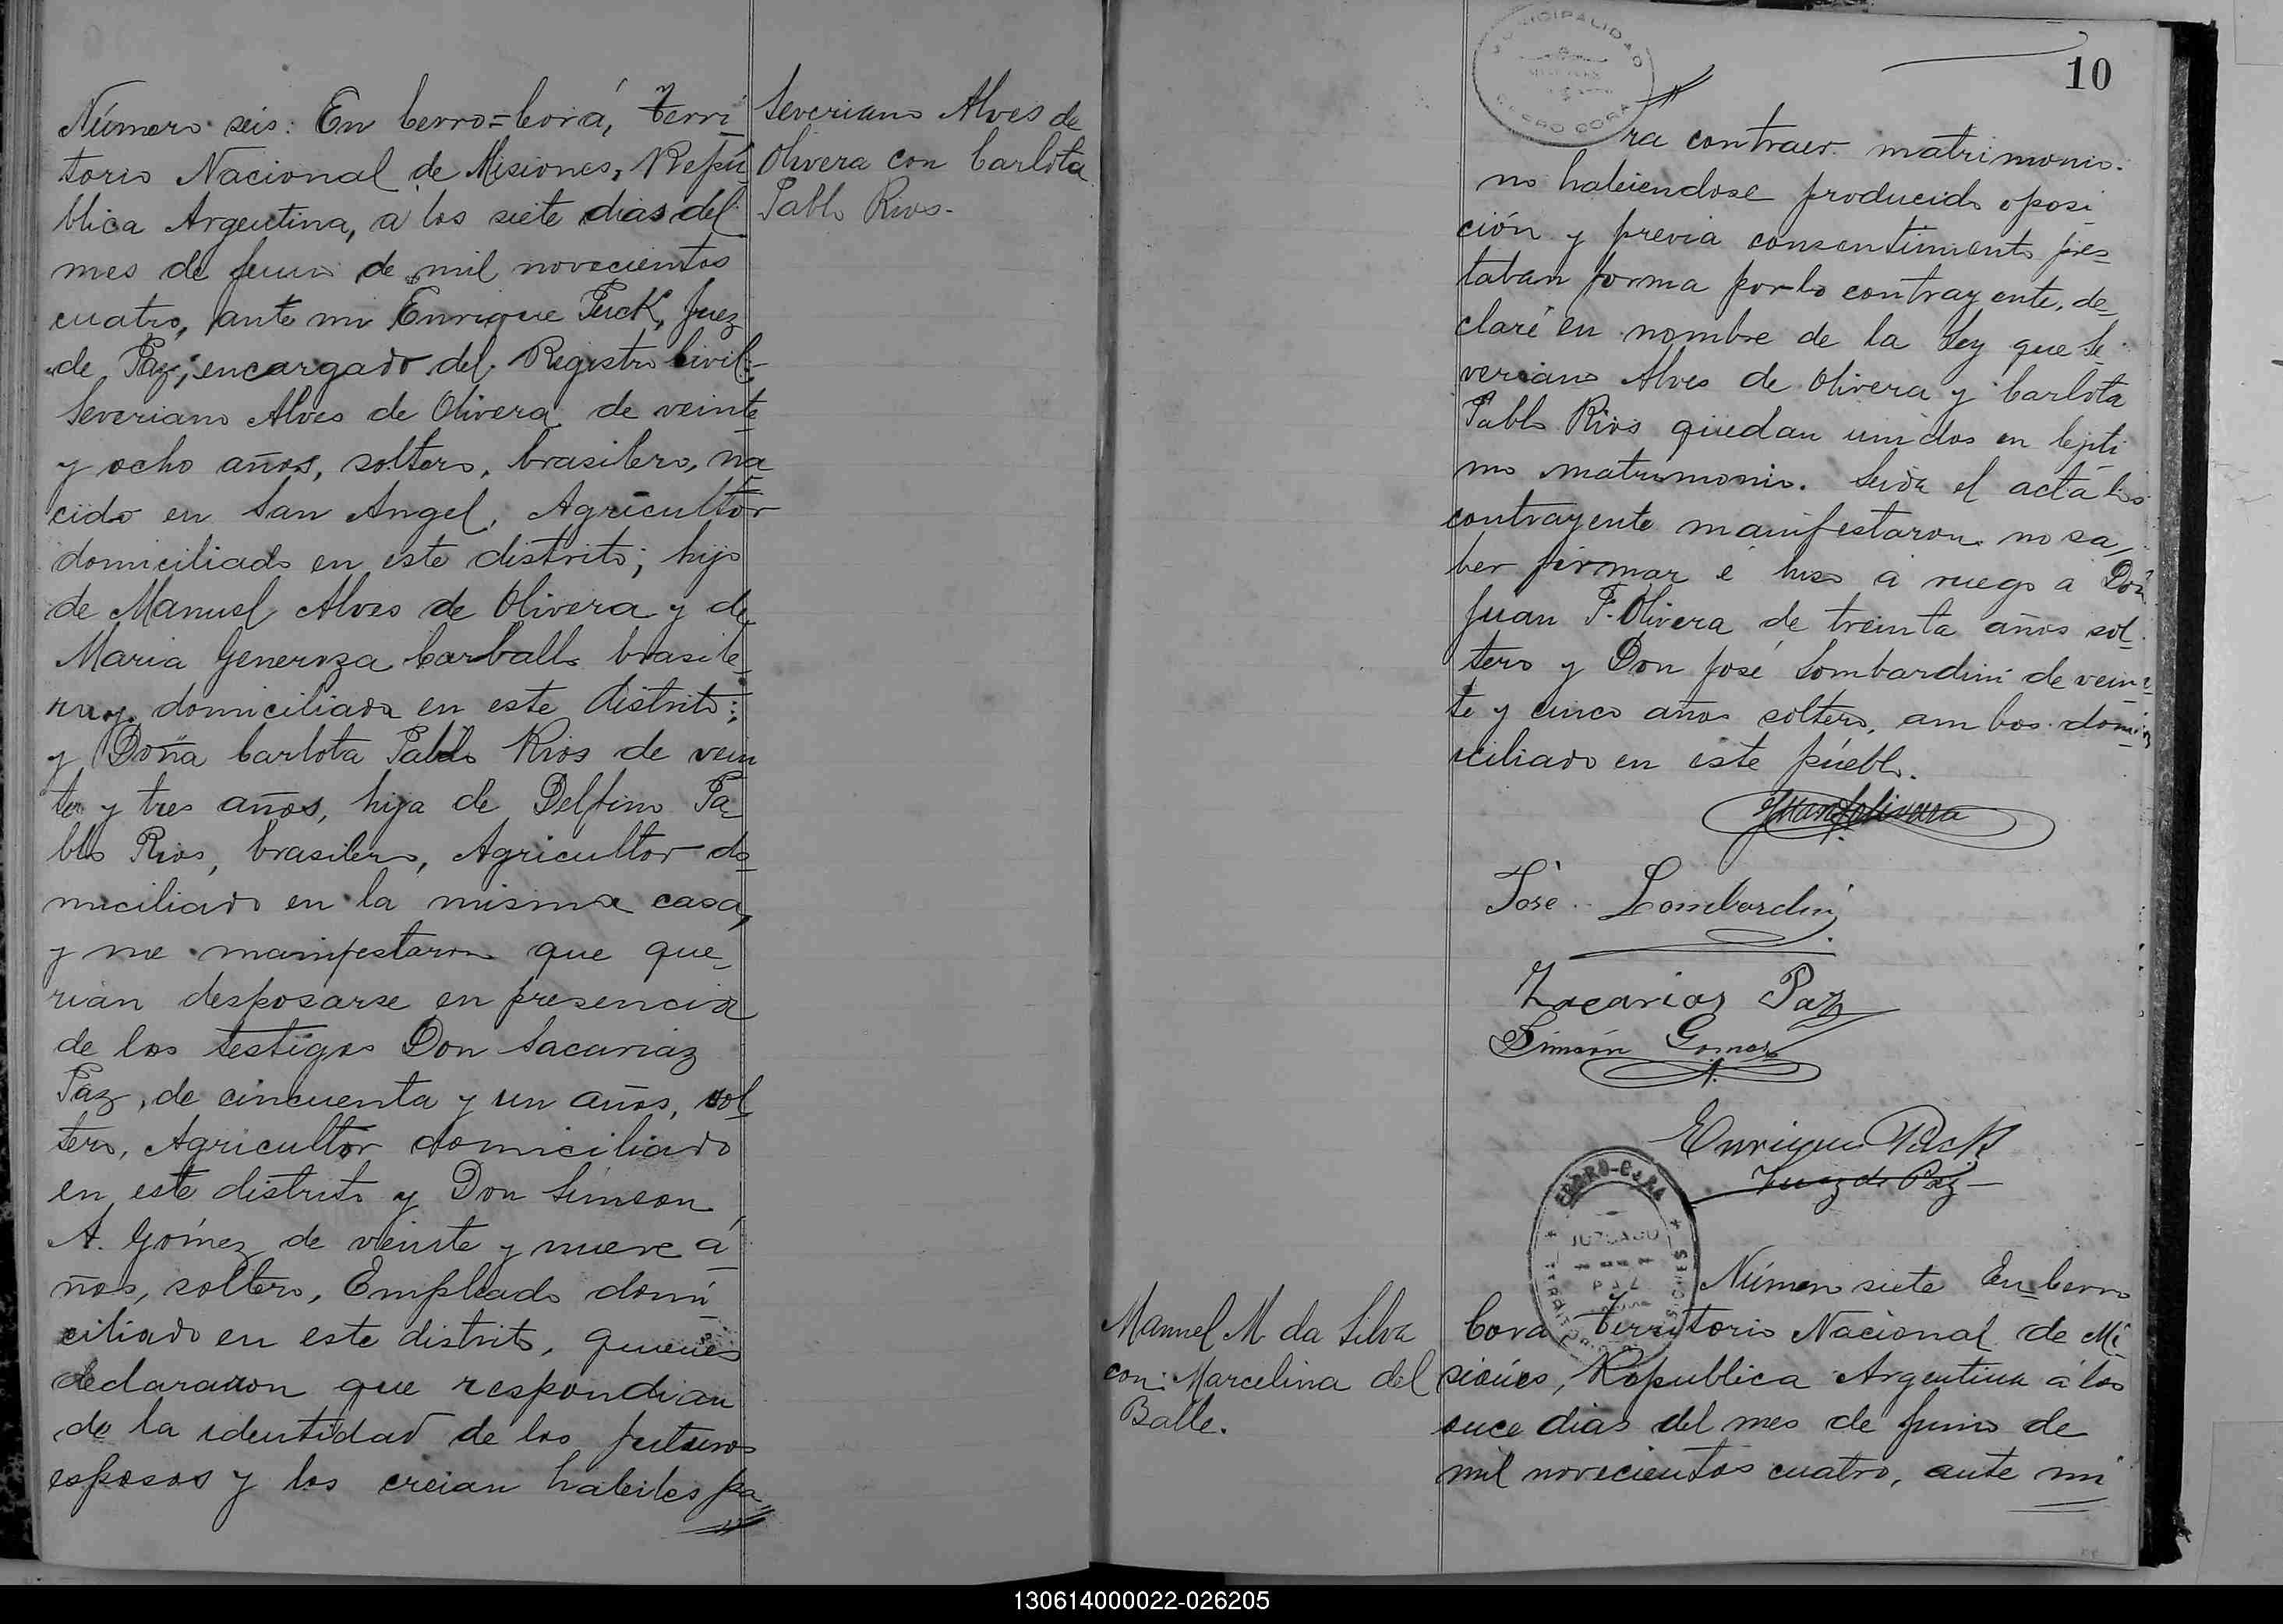 Número seis: En Cerro=Corá, Terri
torio Nacional de Misiones, Repú
blica Argentina, a los siete dias del
mes de Junio de mil novecientos
cuatro, ante mi Enrique Puck, Juez
de Paz, encargado del Registro Civil=
Severiano Alves de Olivera de veinte
y ocho años, soltero, brasilero, na
cido en San Angel, Agricultor
domiciliado en este distrito; hijo
de Manuel Alves de Olivera y de
Maria Generoza Carballo brasile
domiciliada en este distrito;
y Doña Carlota Pablo Rios de vein
te y tres años, hija de Delfino Pa
blo Rios, brasilero, Agricultor do
miciliado en la misma casa,
y me manifestaron que que
rian desposarse en presencia
de los testigos Don Sacariaz
Paz, de cincuenta y un años, sol
tero, Agricultor domiciliado
en este distrito y Don Simeon
A. Gómez de veinte y nueve a
ños, soltero, Empleado domi
ciliado en este distrito, quienes
declararon que respondian
de la identidad de los futuros
esposos y los creian habiles pa
Severiano Alves de
Olivera con Carlota
Pablo Rios.
MUNICIPALIDAD
CERRO CORA
10
ra contraer matrimonio.
no habiendose producido oposi
ción y previa consentimiento pres
taban forma por lo contrayente, de
claré en nombre de la Ley que Se
veriano Alves de Olivera y Carlota
Pablo Rios quedan unidos en lejiti
mo matrimonio. Leida el acta los
contrayente manifestaron no sa
ber firmar é hiso a ruego a Don
Juan F. Olivera de treinta años sol
tero y Don José Lombardini de vein
te y cinco años soltero, ambos domi
ciliado en este pueblo.
Juan F Olivera
José Lombardini
Zacarias Paz
Simeón Gomez
Enrique Puck
Juez de Paz
CERRO-CORA
JUZGADO
DE
PAZ
MISIONES
Manuel M da Silva
con Marcelina del
Balle.
Número siete En Cerro
Cora Territorio Nacional de Mi
siones, Republica Argentina á los
once dias del mes de Junio de
mil novecientos cuatro, ante mi
130614000022-026205